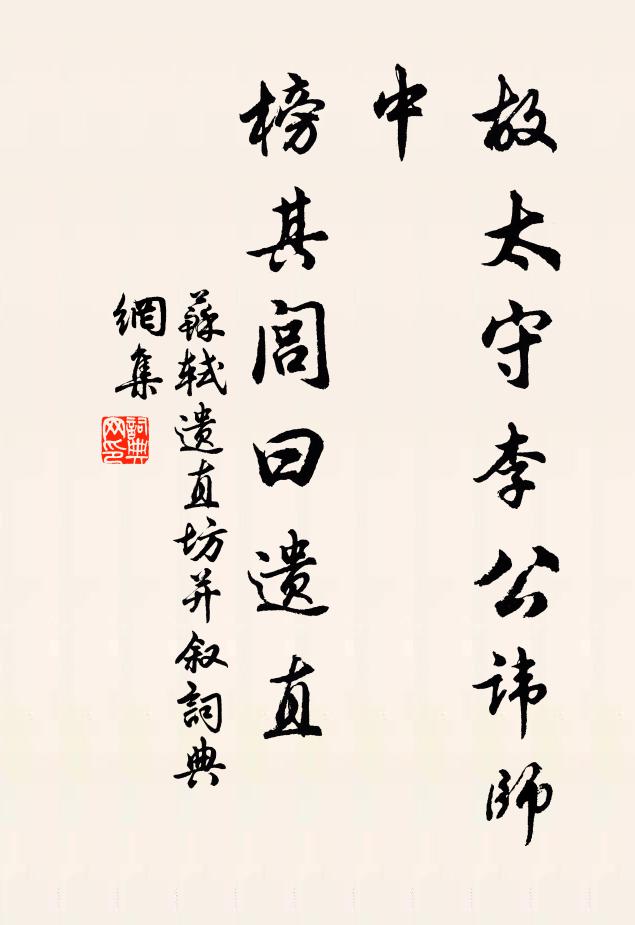 故太守李公諱師
中
榜其閭曰遺直
蘇軾遺直坊并叙詞典
網集
詞典
网印